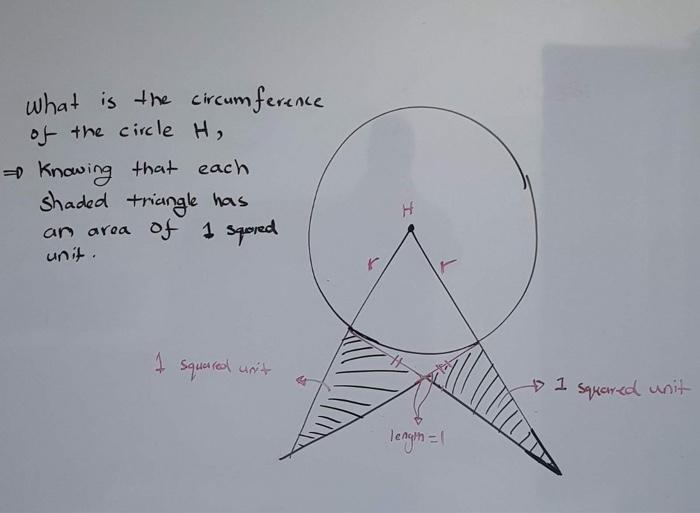 What is the circumference
of the circle H,
⇒ Knowing that each
shaded triangle has
an area of 1 squared
unit.
H
r r
1 squared unit
1 squared unit
length = 1